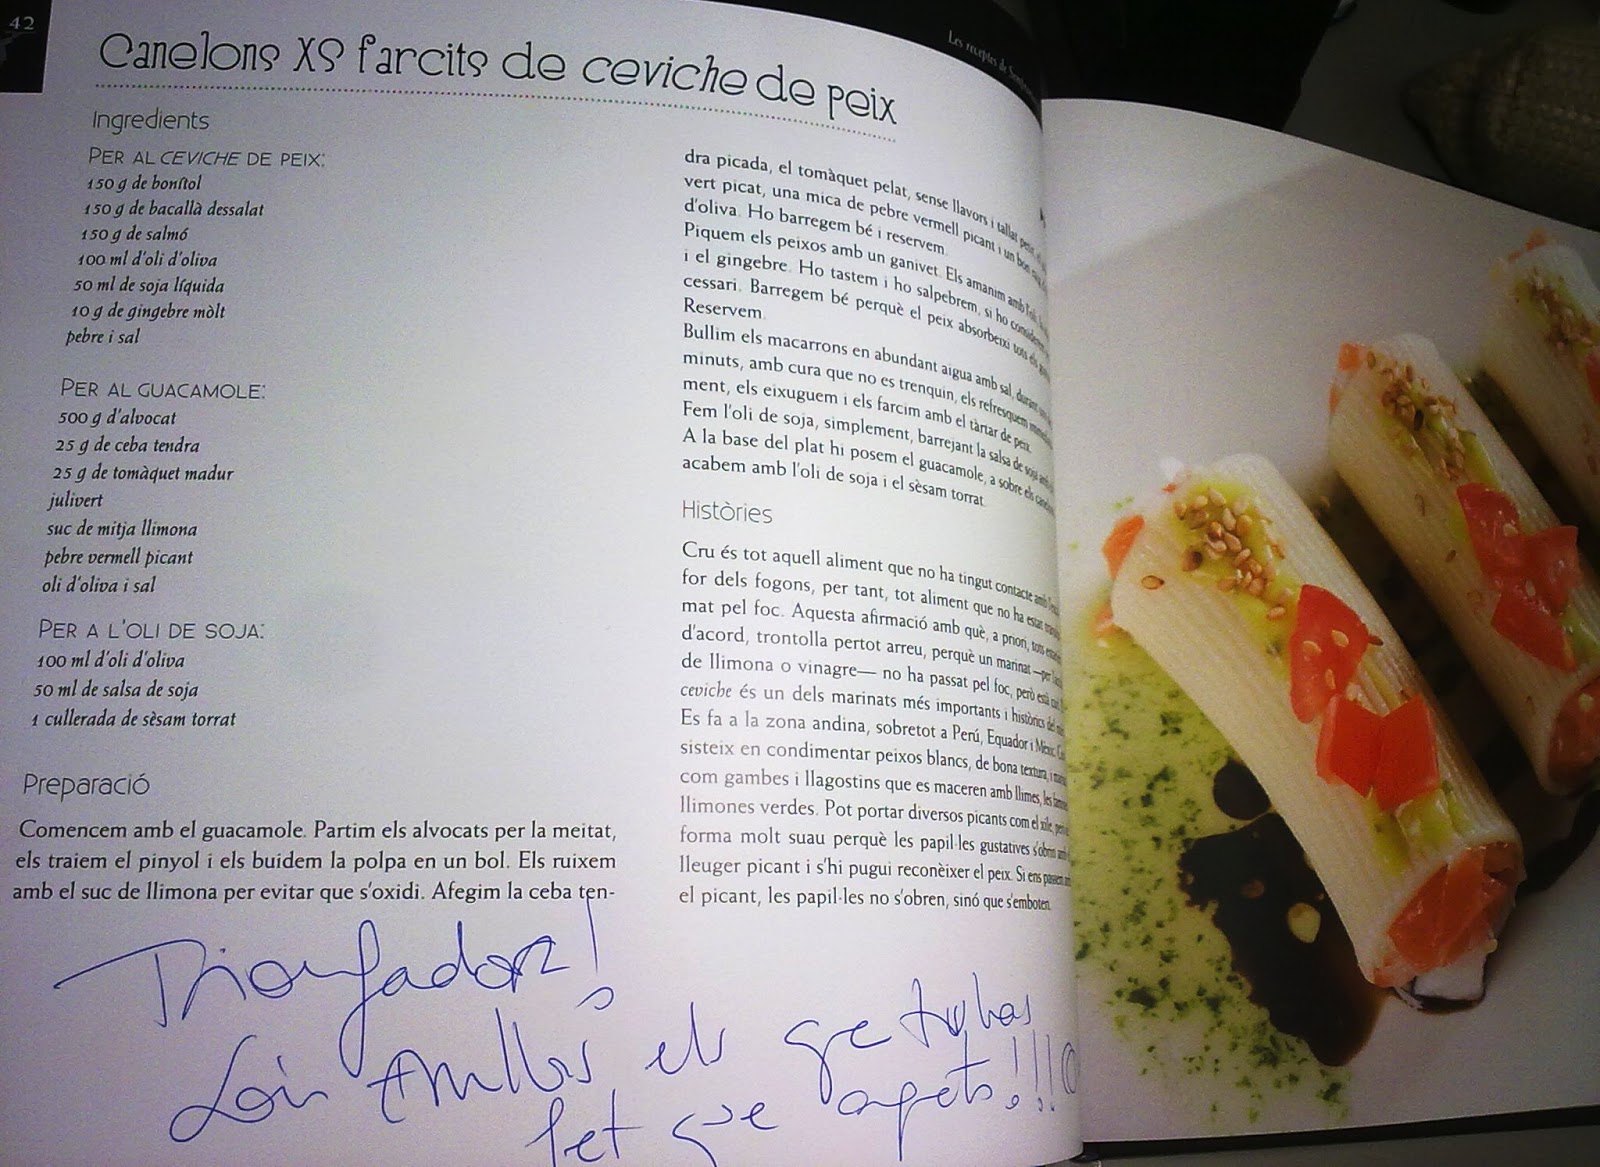 42
Les receptes de
Canelons XS farcits de ceviche de peix
Ingredients
PER AL CEVICHE DE PEIX:
150 g de bonítol
150 g de bacallà dessalat
150 g de salmó
100 ml d'oli d'oliva
50 ml de soja líquida
10 g de gingebre mòlt
pebre i sal
PER AL GUACAMOLE:
500 g d'alvocat
25 g de ceba tendra
25 g de tomàquet madur
julivert
suc de mitja llimona
pebre vermell picant
oli d'oliva i sal
PER A L'OLI DE SOJA:
100 ml d'oli d'oliva
50 ml de salsa de soja
1 cullerada de sèsam torrat
Preparació
Comencem amb el guacamole. Partim els alvocats per la meitat,
els traiem el pinyol i els buidem la polpa en un bol. Els ruixem
amb el suc de llimona per evitar que s'oxidi. Afegim la ceba ten-
dra picada, el tomàquet pelat, sense llavors i tallat petit,
vert picat, una mica de pebre vermell picant i un bon
d'oliva. Ho barregem bé i reservem.
Piquem els peixos amb un ganivet. Els amanim amb l'oli,
i el gingebre. Ho tastem i ho salpebrem, si ho
cessari. Barregem bé perquè el peix absorbeixi tots els
Reservem.
Bullim els macarrons en abundant aigua amb sal, durant
minuts, amb cura que no es trenquin, els refresquem
ment, els eixuguem i els farcim amb el tàrtar de peix.
Fem l'oli de soja, simplement, barrejant la salsa de soja amb
A la base del plat hi posem el guacamole, a sobre els
acabem amb l'oli de soja i el sèsam torrat.
Històries
Cru és tot aquell aliment que no ha tingut contacte amb
for dels fogons, per tant, tot aliment que no ha estat
mat pel foc. Aquesta afirmació amb què, a priori, tots
d'acord, trontolla pertot arreu, perquè un marinat —per
de llimona o vinagre— no ha passat pel foc, però està
ceviche és un dels marinats més importants i històrics del
Es fa a la zona andina, sobretot a Perú, Equador i Mèxic.
sisteix en condimentar peixos blancs, de bona textura, i
com gambes i llagostins que es maceren amb llimes, les
llimones verdes. Pot portar diversos picants com el xile,
forma molt suau perquè les papil·les gustatives s'obrin
lleuger picant i s'hi pugui reconèixer el peix. Si ens passem
el picant, les papil·les no s'obren, sinó que s'emboten.
els que
fet que